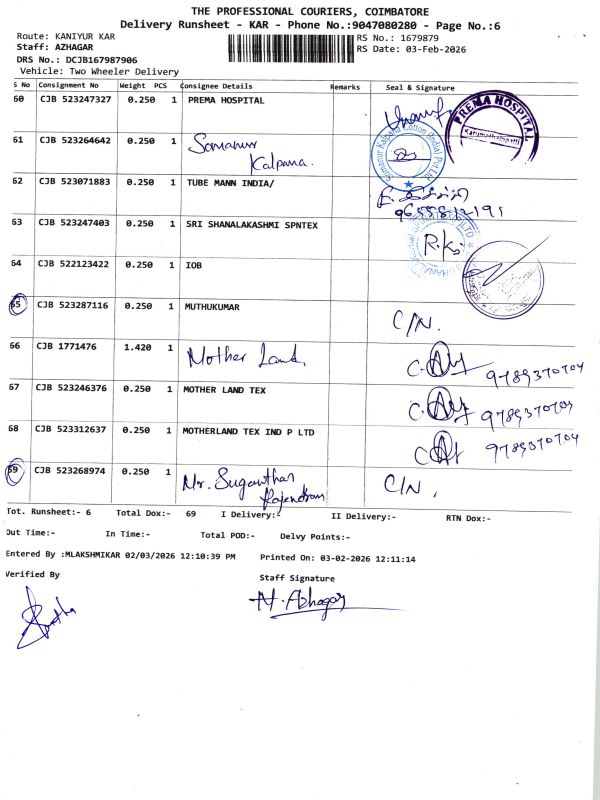 THE PROFESSIONAL COURIERS, COIMBATORE
Delivery Runsheet - KAR - Phone No.:9047080280 - Page No.:6
Route: KANIYUR KAR RS No.: 1679879
Staff: AZHAGAR RS Date: 03-Feb-2026
DRS No.: DCJB167987906
Vehicle: Two Wheeler Delivery
S No Consignment No Weight PCS Consignee Details Remarks Seal & Signature
60 CJB 523247327 0.250 1 PREMA HOSPITAL PREMA HOSPITAL
61 CJB 523264642 0.250 1 Somanur Kalpana Somanur Kalpana Cotton (India) Pvt Ltd
62 CJB 523071883 0.250 1 TUBE MANN INDIA/
63 CJB 523247403 0.250 1 SRI SHANALAKASHMI SPNTEX
64 CJB 522123422 0.250 1 IOB
65 CJB 523287116 0.250 1 MUTHUKUMAR C/N.
66 CJB 1771476 1.420 1 Mother Land 9789370704
67 CJB 523246376 0.250 1 MOTHER LAND TEX 9789370704
68 CJB 523312637 0.250 1 MOTHERLAND TEX IND P LTD 9789370704
69 CJB 523268974 0.250 1 Mr. Suganthan Rajendran C/N.
Tot. Runsheet:- 6 Total Dox:- 69 I Delivery:- II Delivery:- RTN Dox:-
Out Time:- In Time:- Total POD:- Delvy Points:-
Entered By :MLAKSHMIKAR 02/03/2026 12:10:39 PM Printed On: 03-02-2026 12:11:14
Verified By Staff Signature
N. Azhagar